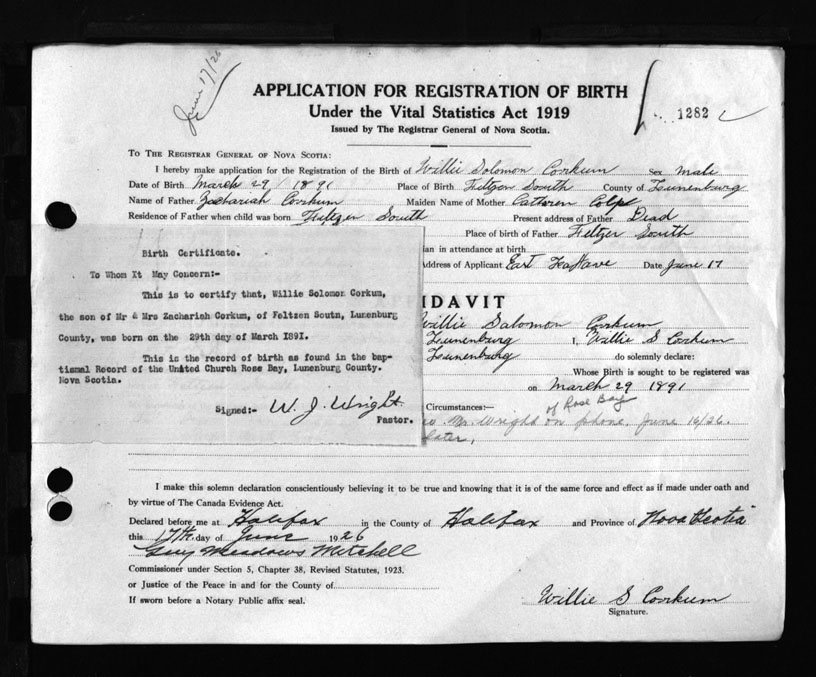 June 17/26
APPLICATION FOR REGISTRATION OF BIRTH
Under the Vital Statistics Act 1919
Issued by The Registrar General of Nova Scotia.
1282
To The Registrar General of Nova Scotia:
I hereby make application for the Registration of the Birth of Willie Solomon Corkum Sex male
Date of Birth March 29/1891 Place of Birth Feltzen South County of Lunenburg
Name of Father Zachariah Corkum Maiden Name of Mother Cathren
Residence of Father when child was born Feltzen South Present address of Father Dead
Place of birth of Father Feltzen South
ian in attendance at birth
Address of Applicant East LaHave Date June 17
Birth Certificate.
To Whom It May Concern:-
This is to certify that, Willie Solomon Corkum,
the son of Mr & Mrs Zachariah Corkum, of Feltzen Soutn, Lunenburg
County, was born on the 29th day of March 1891.
This is the record of birth as found in the bap-
tismal Record of the United Church Rose Bay, Lunenburg County.
Nova Scotia.
Signed:- W. J. Wright
Pastor.
IDAVIT
Willie Salomon Corkum
Lunenburg I, Willie S Corkum
Lunenburg do solemnly declare:
Whose Birth is sought to be registered was
on March 29 1891
Circumstances:—
of Rose Bay
Mr. Wright on phone June 16/26.
later,
I make this solemn declaration conscientiously believing it to be true and knowing that it is of the same force and effect as if made under oath and
by virtue of The Canada Evidence Act.
Declared before me at Halifax in the County of Halifax and Province of Nova Scotia
this 17th day of June 1926
Guy Meadows Mitchell
Commissioner under Section 5, Chapter 38, Revised Statutes, 1923.
or Justice of the Peace in and for the County of
If sworn before a Notary Public affix seal.
Willie S Corkum
Signature.